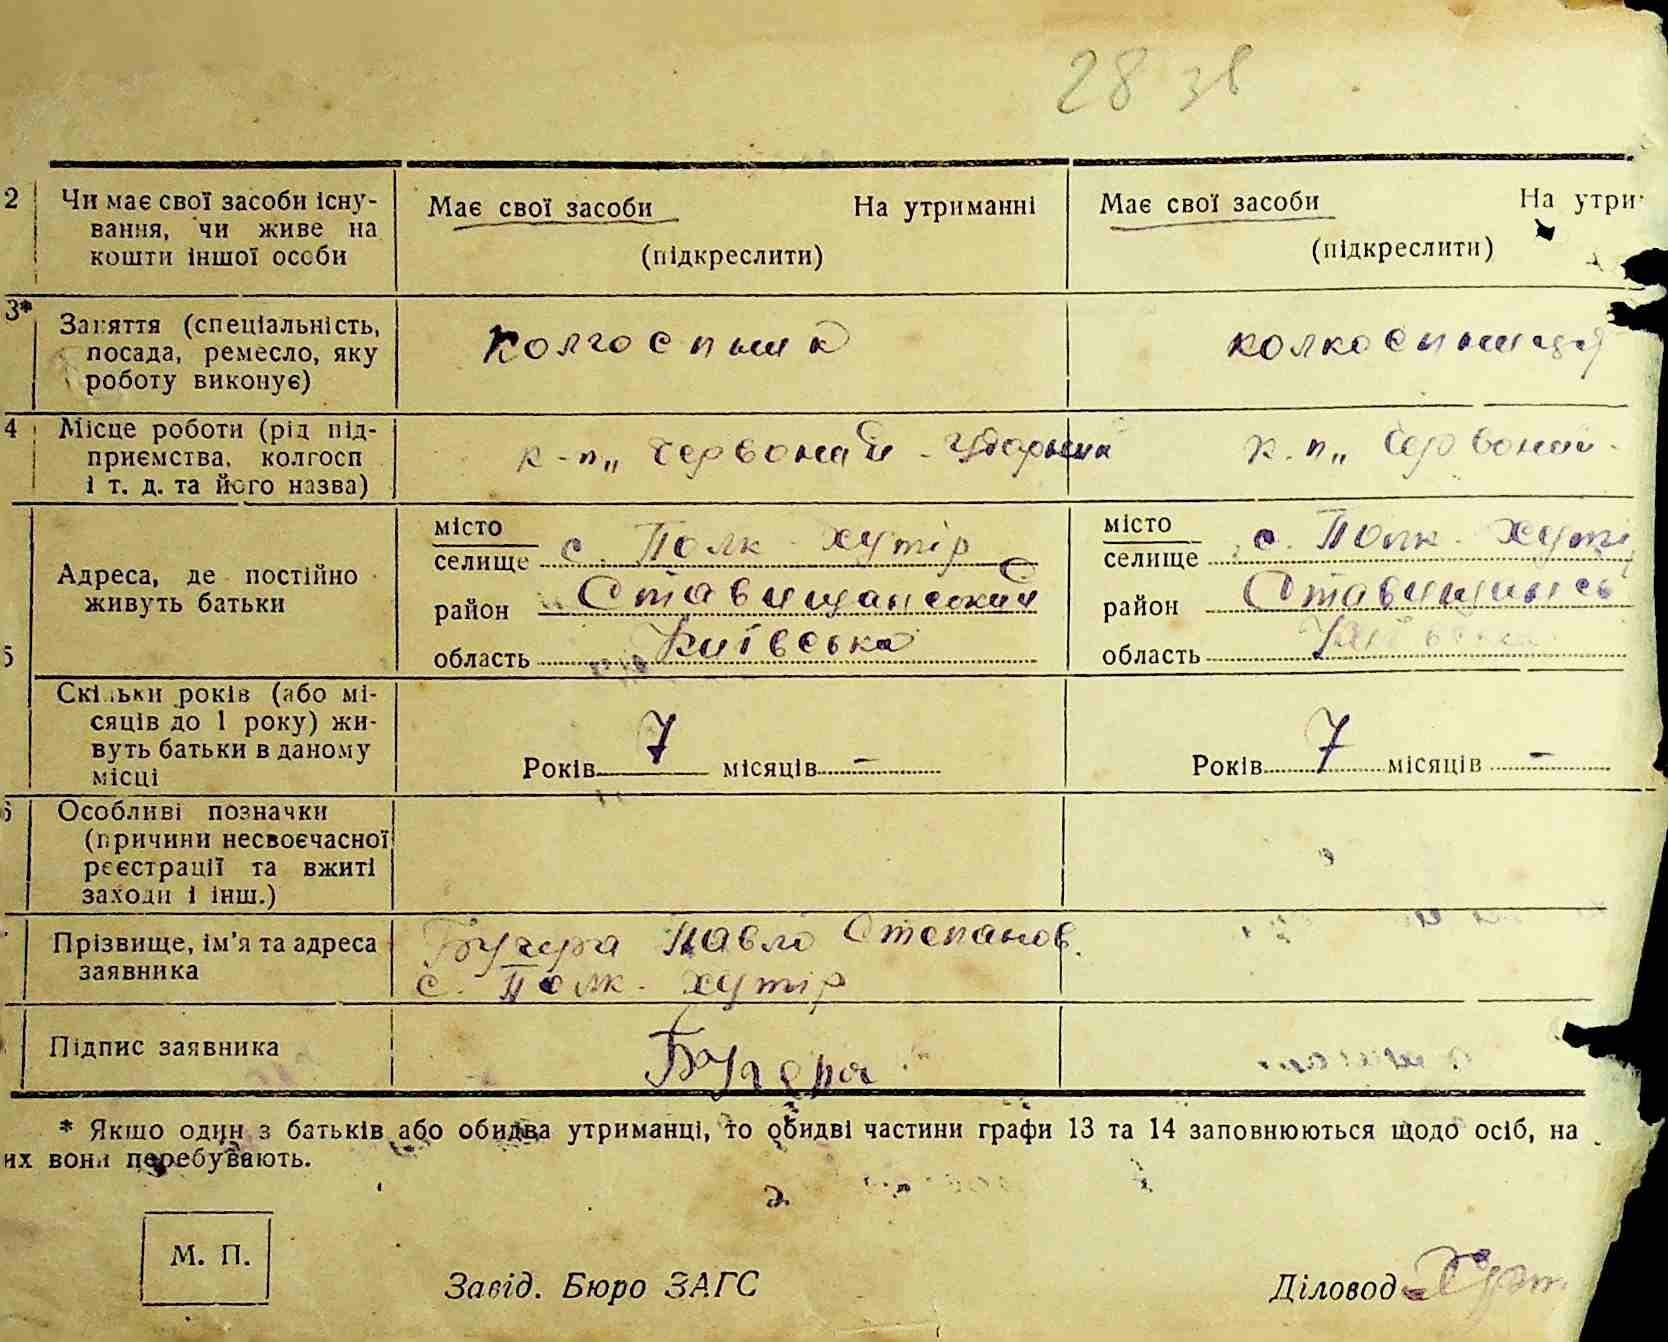 28 зв
2 Чи має свої засоби існу-
вання, чи живе на
кошти іншої особи
Має свої засоби На утриманні
(підкреслити)
Має свої засоби На утри
(підкреслити)
3* Заняття (спеціальність,
посада, ремесло, яку
роботу виконує)
Колгоспник
колкоспниця
4 Місце роботи (рід під-
приємства, колгосп
і т. д. та його назва)
к-п „Червоний - Ударник
к.п „Червоний -
5 Адреса, де постійно
живуть батьки
місто
селище с. Полк - хутір
район Ставищанский
область Київська
місто
селище с. Полк - хуті
район Ставищинсь
область
Скільки років (або мі-
сяців до 1 року) жи-
вуть батьки в даному
місці
Років 7 місяців -
Років 7 місяців -
6 Особливі позначки
(причини несвоєчасної
реєстрації та вжиті
заходи і інш.)
Прізвище, ім'я та адреса
заявника
Бугера Павло Степанов.
с. Полк - хутір
Підпис заявника
Бугера
* Якщо один з батьків або обидва утриманці, то обидві частини графи 13 та 14 заповнюються щодо осіб, на
их вони перебувають.
М. П.
Завід. Бюро ЗАГС
Діловод